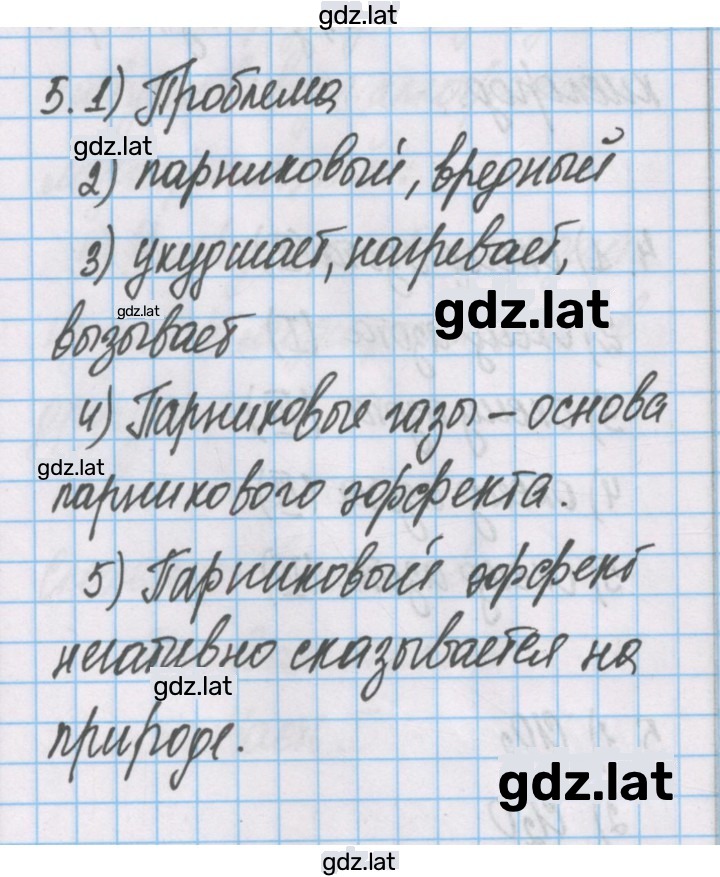 gdz.lat
5. 1) Проблема
gdz.lat
2) парниковый, вредный
3) ухудшает, нагревает,
gdz.lat
gdz.lat
вызывает
4) Парниковые газы – основа
gdz.lat
парникового эффекта.
5) Парниковый эффект
негативно сказывается на
gdz.lat
природе.
gdz.lat
gdz.lat